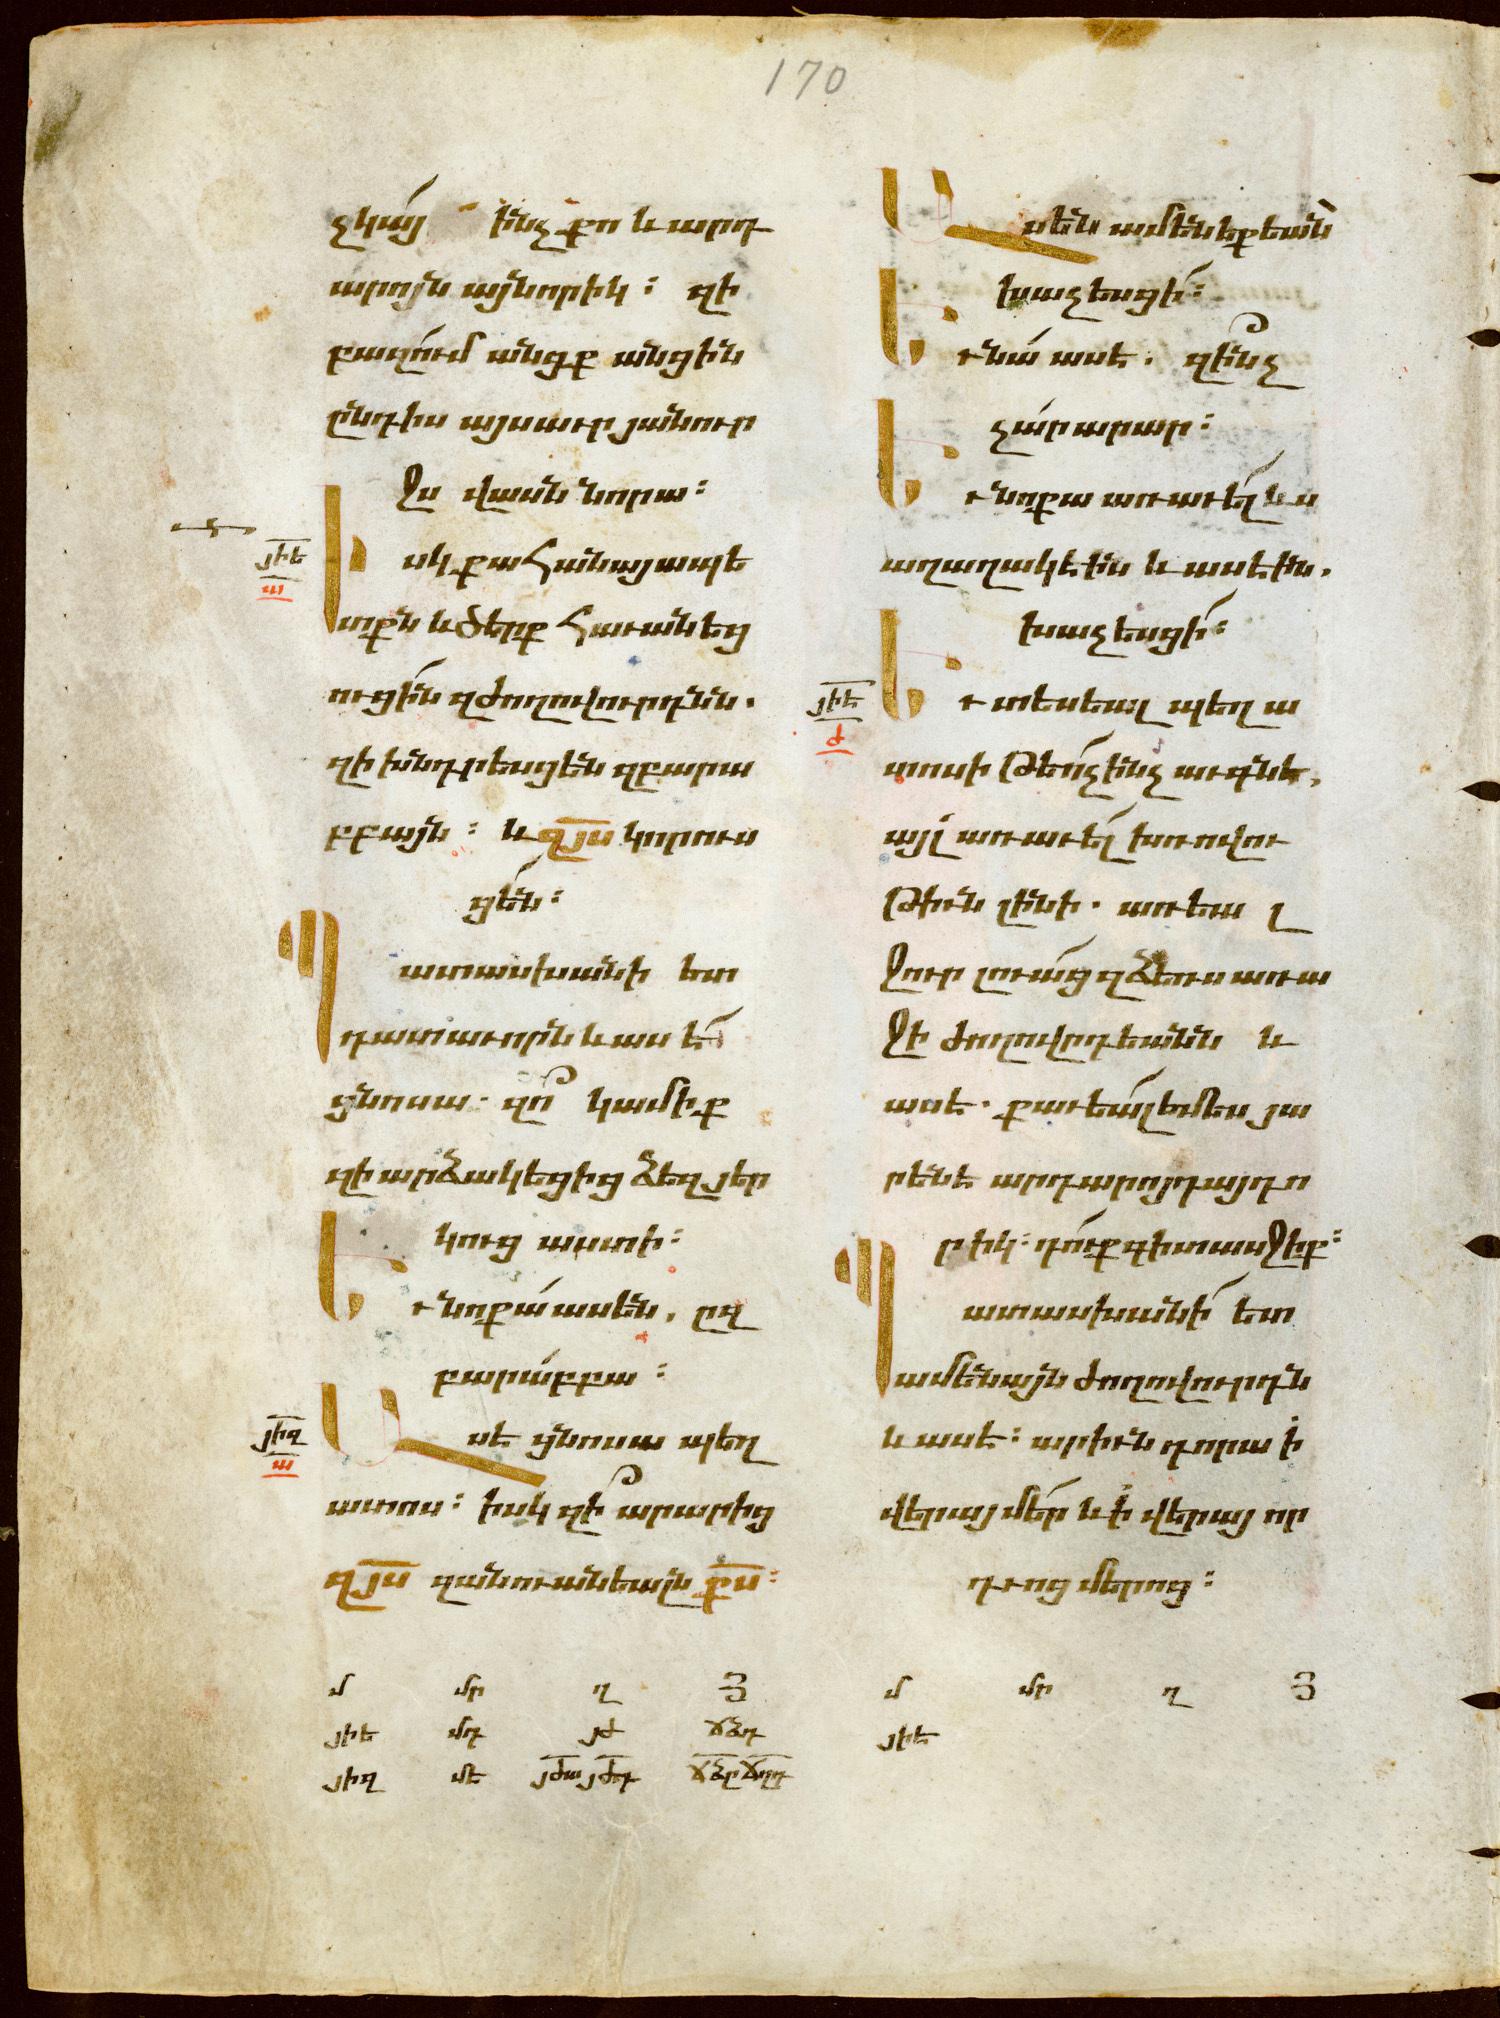 170
չկայ ինչ քո և արդ
արոյն այնորիկ։ զի
բազում անցք անցին
ընդիս այսաւր յանուր
ջս վասն նորա։
Իսկ քահանայապե
տքն և ծերք հաւանեց
ուցին զժողովուրդնն.
զի խնդրեսցեն զբարա
բբայն։ և զյս կորուս
ցեն։
Պատասխանի ետ
դատաւորն և ասէ
ցնոսա. զո կամիք
զի արձակեցից ձեզ յեր
կուց աստի։
Եւ նոքա ասեն, ըզ
բարաբբա։
Ասէ ցնոսա պեղ
ատոս։ իսկ զի արարից
զյս զանուանեալն քս։
յիե
ա
յիզ
ա
մ մր ղ Յ
յիե մդ յժ
յիզ մե յժա յժդ
Ասեն ամենեքեան
խաչեսցի։
Եւ նա ասէ. զինչ
չար արար։
Եւ նոքա առաւել ևս
աղաղակէին և ասէին.
խաչեսցի։
Եւ տեսեալ պեղա
տոսի թե ոչ ինչ աւգնէ,
այլ առաւել խռովու
թիւն լինի. առեալ
ջուր լուաց զձեռս առա
ջի ժողովրդեանն և
ասէ. քաւեալ եմ ես յա
րենէ արդարոյդ այդո
րիկ։ դուք գիտասջիք։
Պատասխանի ետ
ամենայն ժողովուրդն
և ասէ։ արիւն դորա ի
վերայ մեր և ի վերայ որ
դւոց մերոց։
յիե
ժ
մ մր ղ Յ
յիե